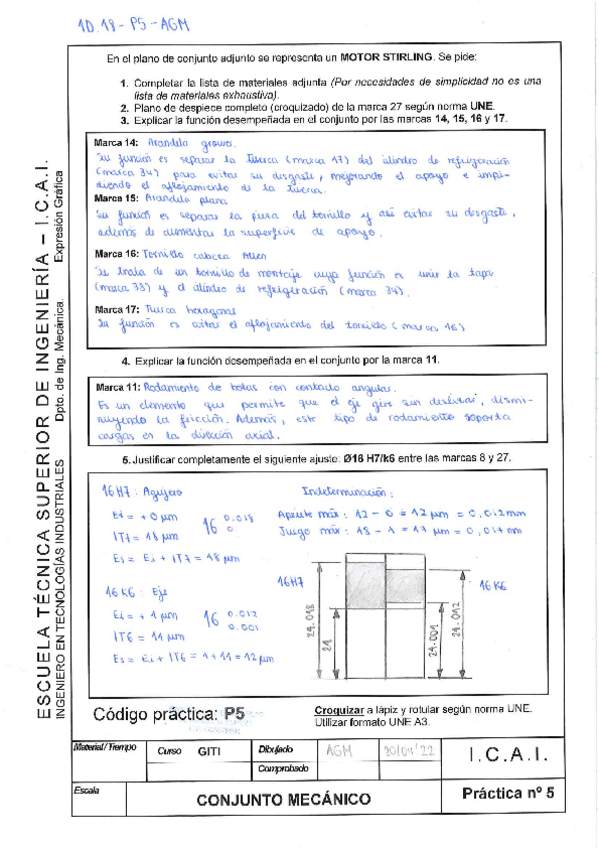 1D.18 - P5 - AGM
En el plano de conjunto adjunto se representa un MOTOR STIRLING. Se pide:
1. Completar la lista de materiales adjunta (Por necesidades de simplicidad no es una
lista de materiales exhaustiva).
2. Plano de despiece completo (croquizado) de la marca 27 según norma UNE.
3. Explicar la función desempeñada en el conjunto por las marcas 14, 15, 16 y 17.
Marca 14: Arandela grower.
Su función es separar la tuerca (marca 17) del cilindro de refrigeración
(marca 34) para evitar su desgaste, mejorando el apoyo e impi-
diendo el aflojamiento de la tuerca.
Marca 15: Arandela plana
Su función es separar la pieza del tornillo y así evitar su desgaste,
además de aumentar la superficie de apoyo.
Marca 16: Tornillo cabeza Allen
Se trata de un tornillo de montaje cuya función es unir la tapa
(marca 33) y el cilindro de refrigeración (marca 34).
Marca 17: Tuerca hexagonal
Su función es evitar el aflojamiento del tornillo (marca 16)
4. Explicar la función desempeñada en el conjunto por la marca 11.
Marca 11: Rodamiento de bolas con contacto angular.
Es un elemento que permite que el eje gire sin deslizar, dismi-
nuyendo la fricción. Además, este tipo de rodamiento soporta
cargas en la dirección axial.
5. Justificar completamente el siguiente ajuste: Ø16 H7/k6 entre las marcas 8 y 27.
16H7: Agujero
Indeterminación:
Ei = +0 µm
16 0.018 0
Apriete máx: 12 - 0 = 12 µm = 0,012mm
IT7 = 18 µm
Juego máx: 18 - 1 = 17 µm = 0,017 mm
Es = Ei + IT7 = 18 µm
16H7
16K6
16 K6: Eje
Ei = + 1 µm
16 0.012 0.001
IT6 = 11 µm
Es = Ei + IT6 = 1 + 11 = 12 µm
24.018
24
24.001
24.012
Código práctica: P5
Croquizar a lápiz y rotular según norma UNE.
Utilizar formato UNE A3.
Material/Tiempo
Curso GITI
Dibujado
AGM
20/04/22
I.C.A.I.
Comprobado
Escala
CONJUNTO MECÁNICO
Práctica nº 5
ESCUELA TÉCNICA SUPERIOR DE INGENIERÍA – I.C.A.I.
INGENIERO EN TECNOLOGÍAS INDUSTRIALES
Dpto. de Ing. Mecánica.
Expresión Gráfica